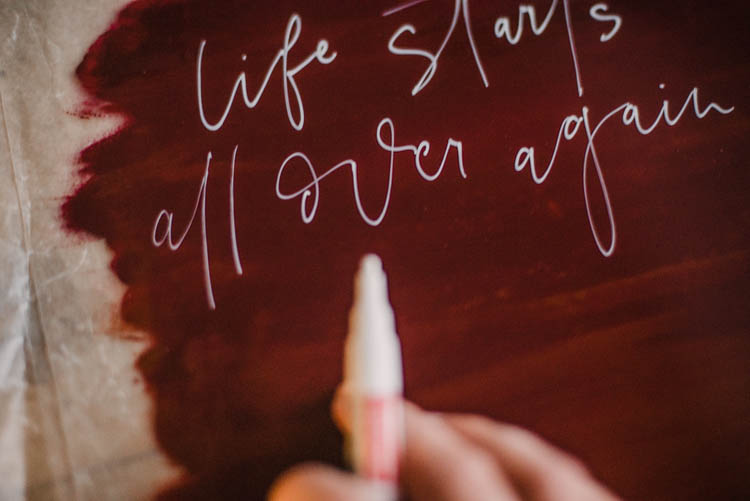 life starts
all over again